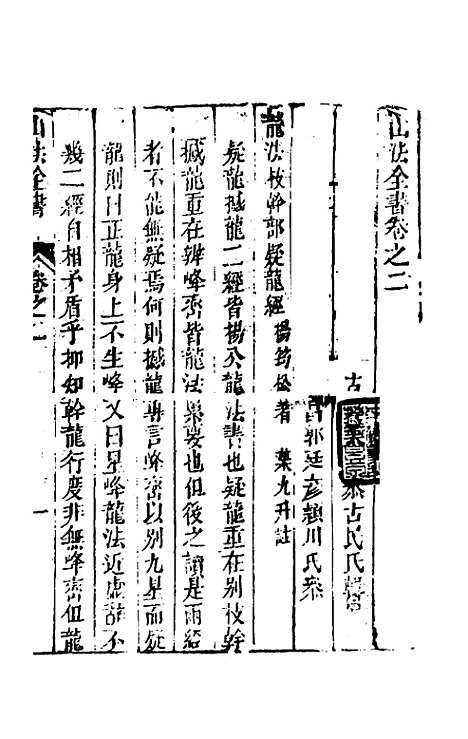 山法全書卷之二
古
參古民氏
郭廷彥穎川氏參
龍法枝幹部疑龍經 楊筠松著 葉九升註
疑龍撼龍二經皆楊公龍法書也疑龍重在別枝幹
撼龍重在辨峰巒皆龍法要也但後之讀是兩經
者不能無疑焉何則撼龍專言峰巒以別九星而疑
龍則曰正龍身上不生峰又曰星峰龍法近虛辭不
幾二經自相矛盾乎抑知幹龍行度非無峰巒但龍
山法全書
卷之二
一